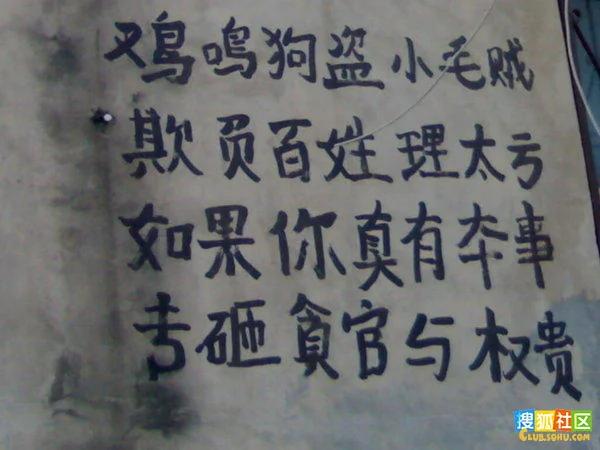 鸡鸣狗盗小毛贼
欺负百姓理太亏
如果你真有本事
专砸贪官与权贵
搜狐社区
CLUB.SOHU.COM